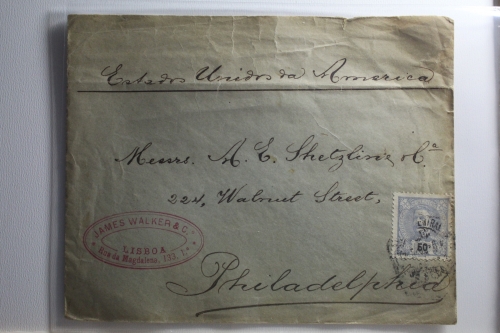 Estados Unidos da America
Messrs. A. E. Shetzline & Co.
224, Walnut Street,
Philadelphia
JAMES WALKER & Co.
LISBOA
Rua da Magdalena, 133, 1º
50